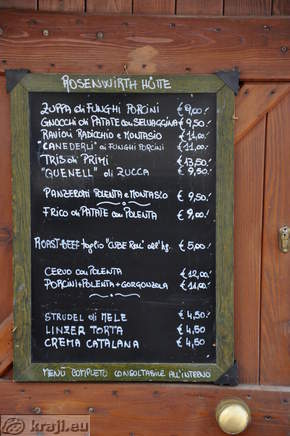 ROSENWIRTH HÜTTE
ZUPPA di FUNGHI PORCINI € 9,00.-
GNOCCHI di PATATE con SELVAGGINA € 9,50.-
RAVIOLI RADICCHIO e MONTASIO € 11,00.-
"CANEDERLI" ai FUNGHI PORCINI € 11,00.-
TRIS di PRIMI € 13,50.-
"QUENELL" di ZUCCA € 9,50.-
PANZEROTTI POLENTA e MONTASIO € 9,50.-
FRICO di PATATE con POLENTA € 9,00.-
ROAST-BEEF taglio "CUBE ROLL" all'hg. € 5,00.-
CERVO con POLENTA € 12,00.-
PORCINI+POLENTA+GORGONZOLA € 11,00.-
STRUDEL di MELE € 4,50
LINZER TORTA € 4,50
CREMA CATALANA € 4,50
MENÙ COMPLETO CONSULTABILE ALL'INTERNO
kraji.eu